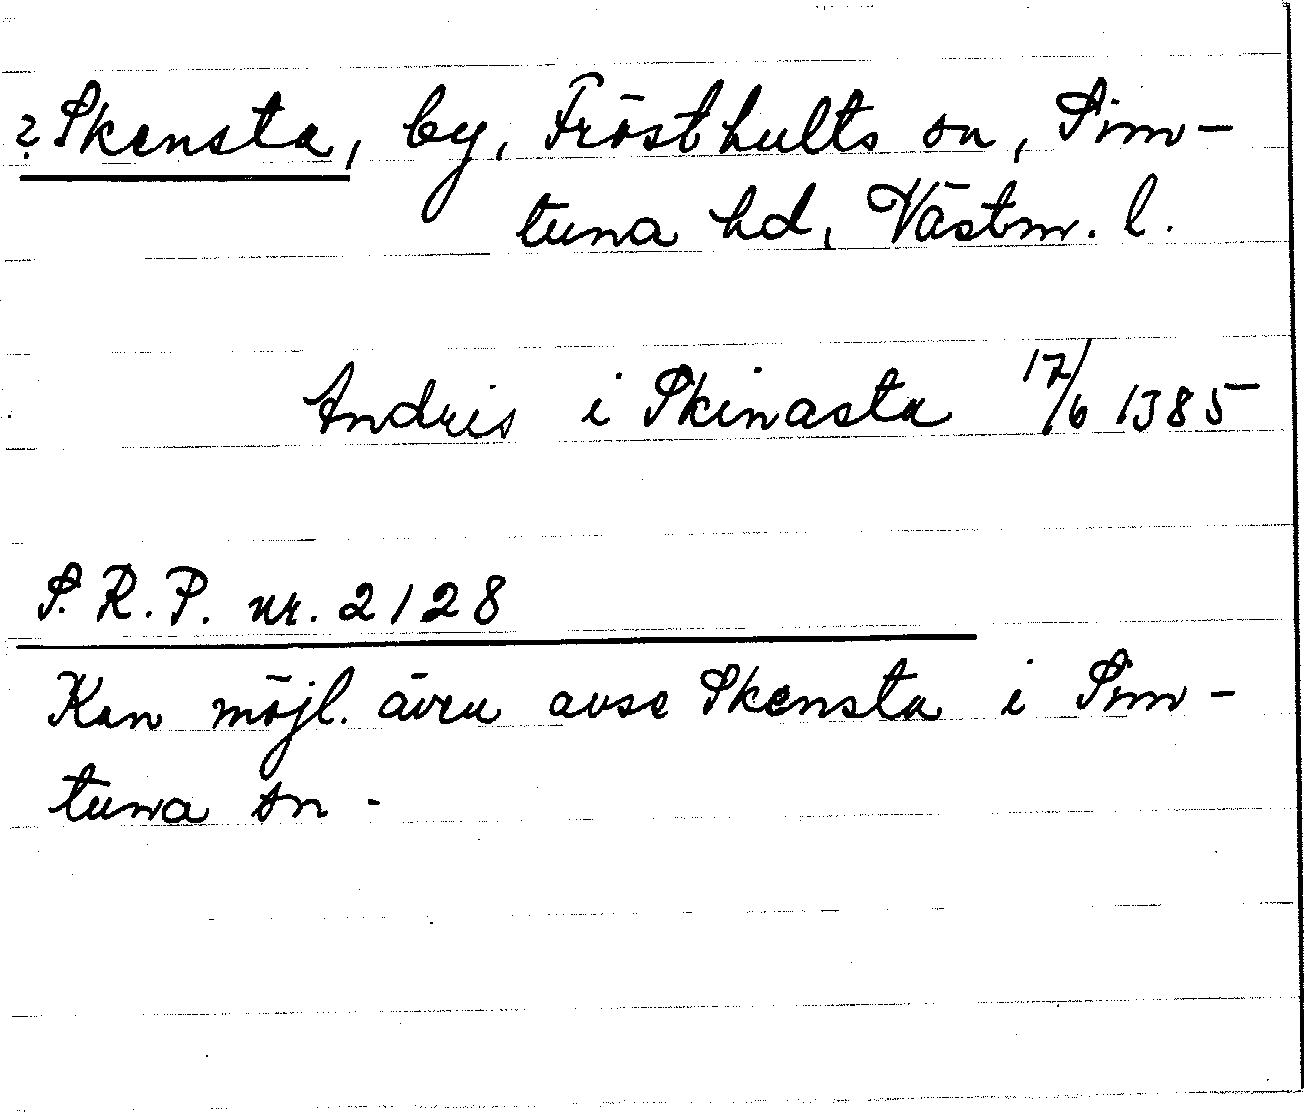 ? Skensta, by, Frösthults sn, Sim-
tuna hd, Västm. l.
Andris i Skinasta 17/6 1385
S. R. P. nr. 2128
Kan möjl. även avse Skensta i Sim-
tuna sn.